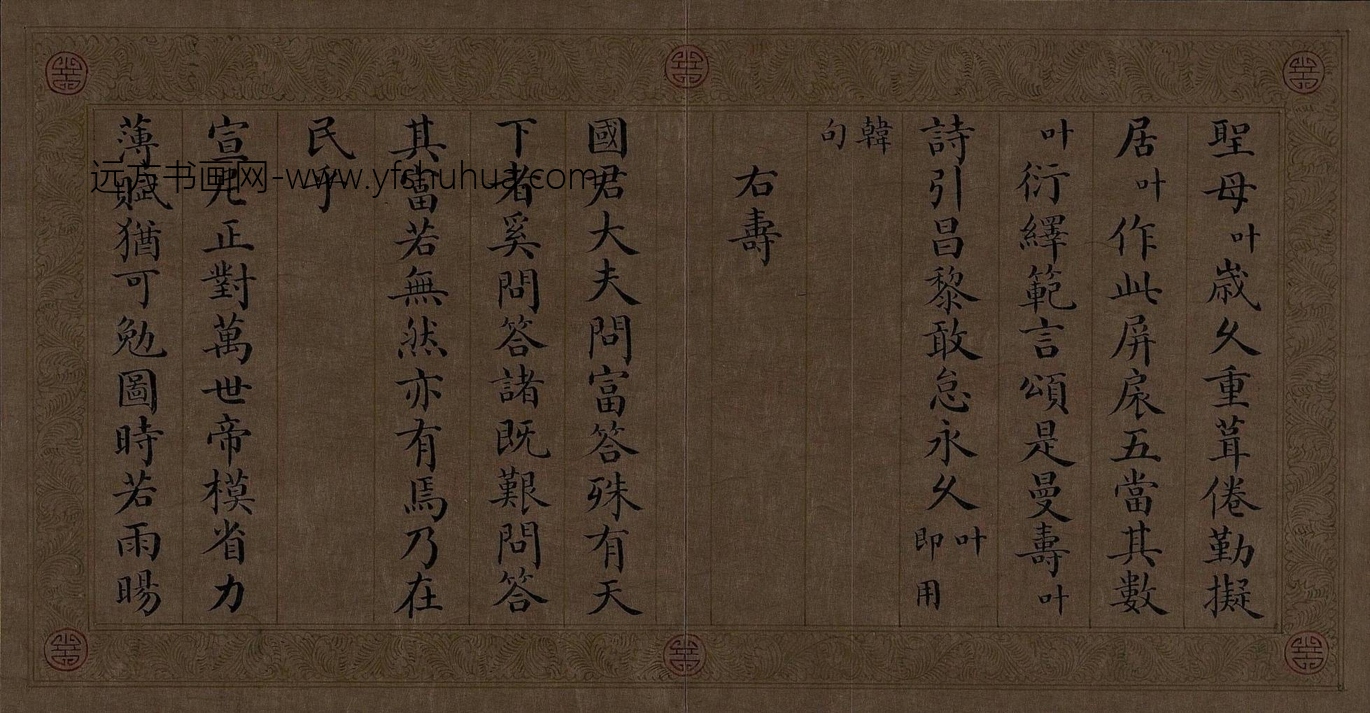 聖母叶嵗久重葺倦勤擬
居叶作此屏扆五當其數
叶衍繹範言頌是曼壽叶
詩引昌黎敢怠永久叶即用
韓句
右壽
國君大夫問富答殊有天
下者奚問答諸既艱問答
其富若無然亦有焉乃在
民乎
宣尼正對萬世帝模省力
薄賦猶可勉圖時若雨暘
远方书画网-www.yfshuhua.com